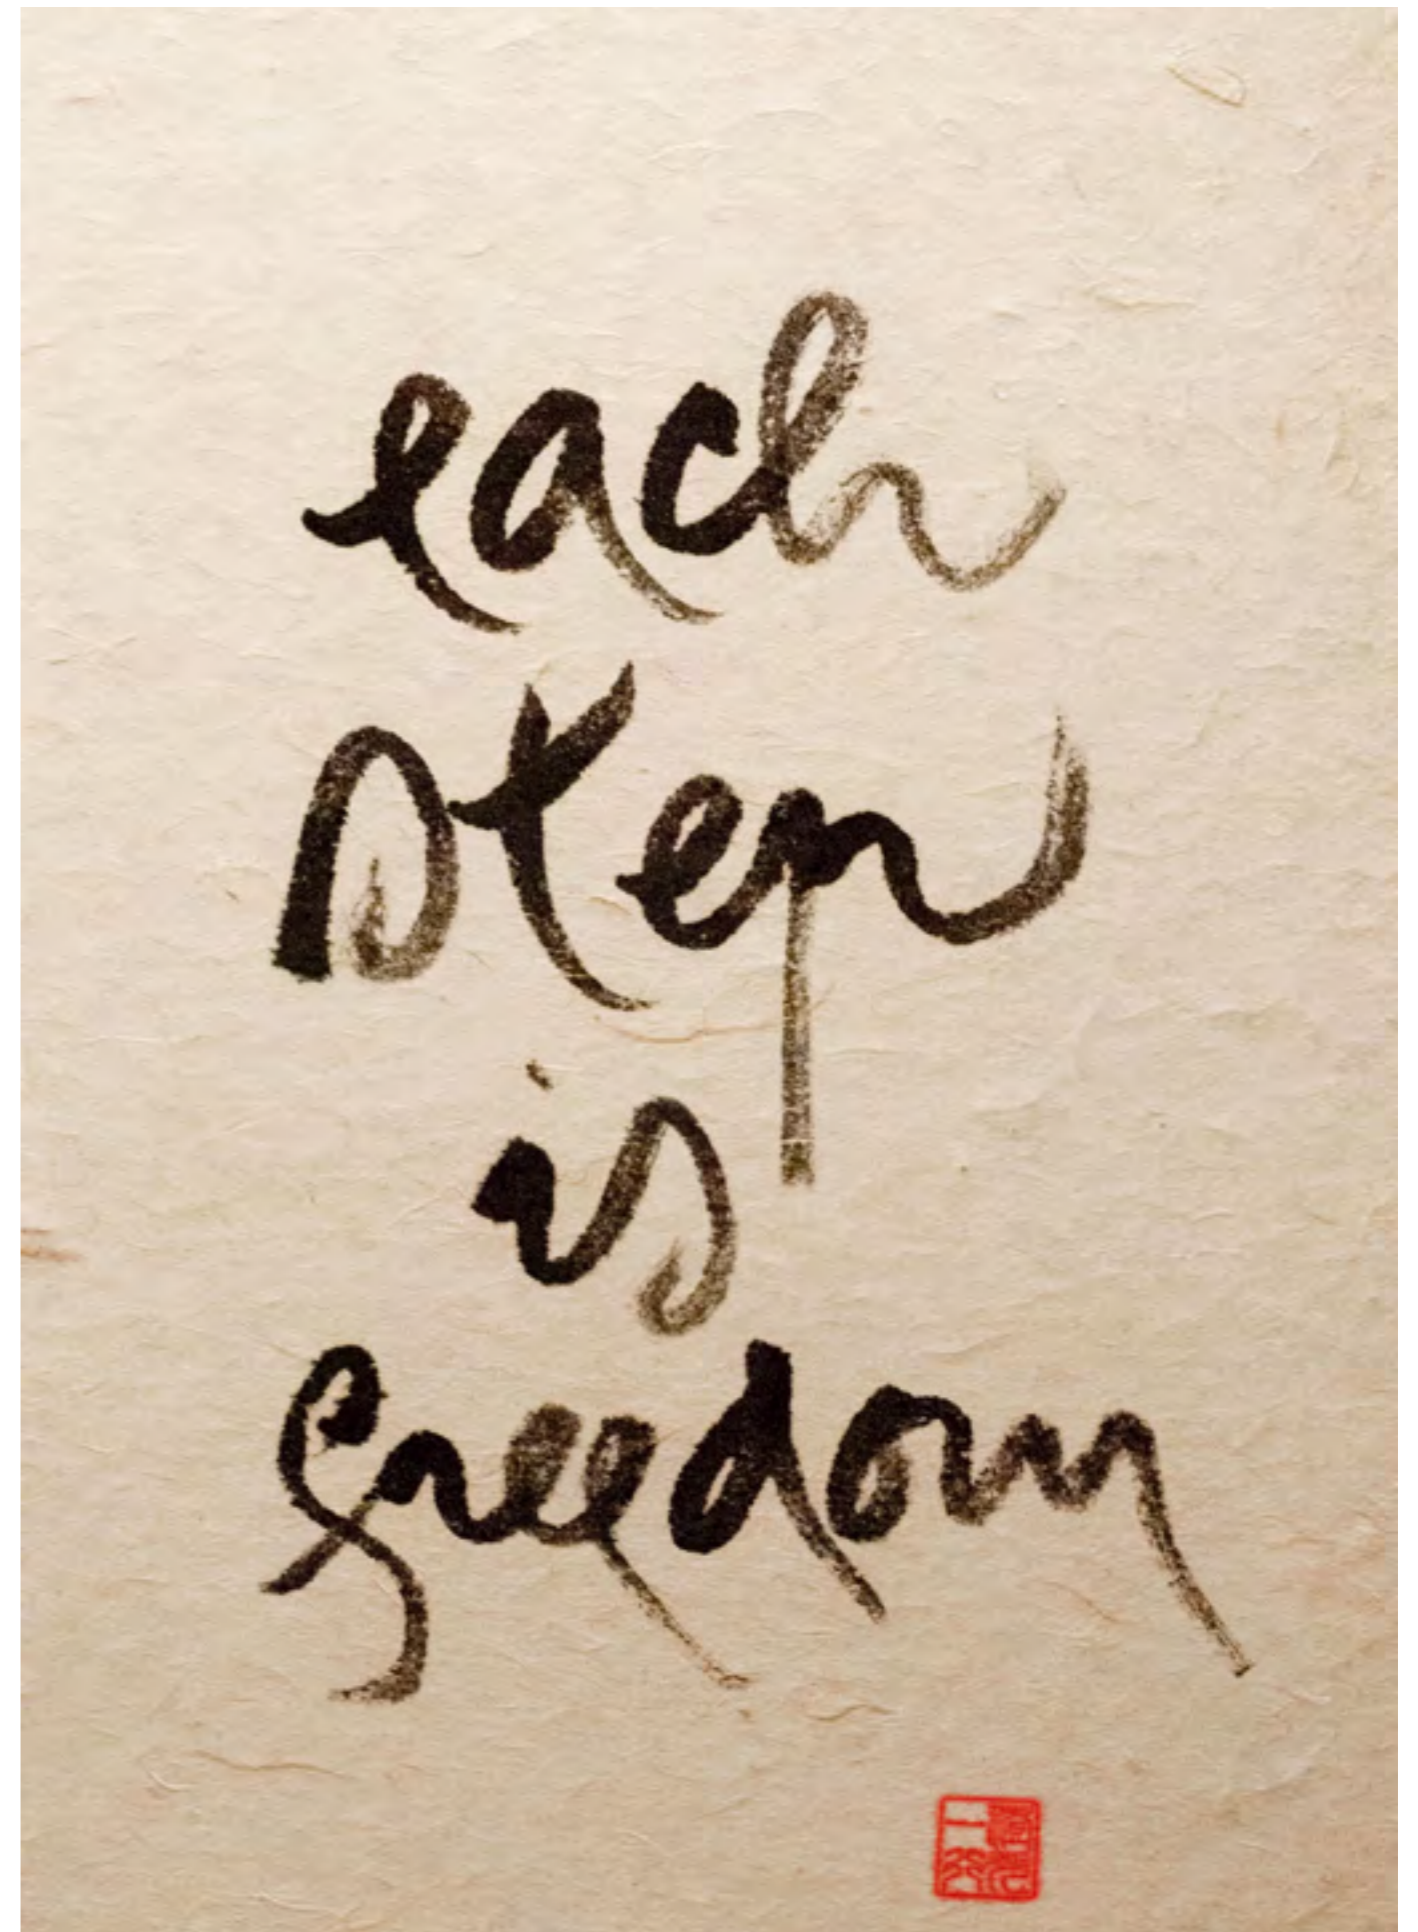 each
step
is
freedom